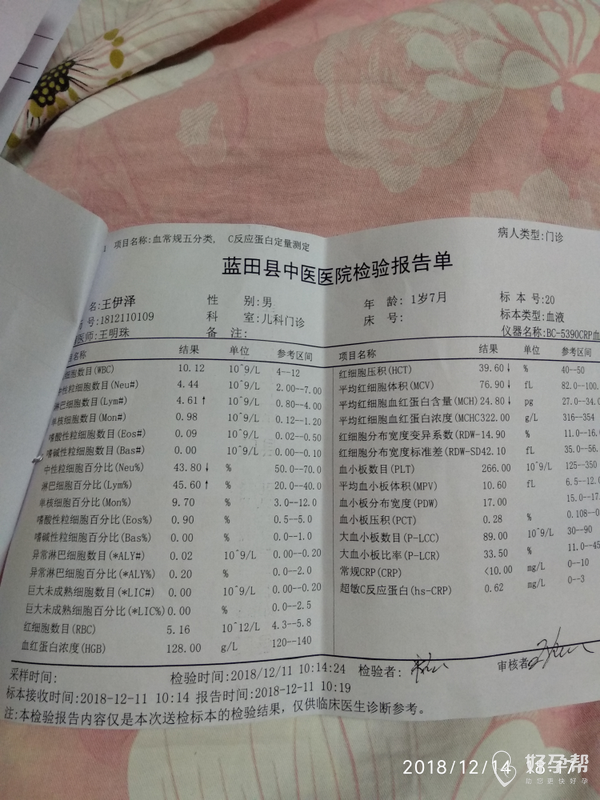 项目名称:血常规五分类, C反应蛋白定量测定
病人类型:门诊
蓝田县中医医院检验报告单
名:王伊泽 性 别:男 年 龄: 1岁7月 标 本 号:20
号:1812110109 科 室:儿科门诊 床 号: 标本类型:血液
医师:王明珠 备 注: 仪器名称:BC-5390CRP血
名称 结果 单位 参考区间 项目名称 结果 单位 参考区间
细胞数目(WBC) 10.12 10^9/L 4--12 红细胞压积(HCT) 39.60↓ % 40--50
中性粒细胞数目(Neu#) 4.44 10^9/L 2.00--7.00 平均红细胞体积(MCV) 76.90↓ fL 82.0--100.
淋巴细胞数目(Lym#) 4.61↑ 10^9/L 0.80--4.00 平均红细胞血红蛋白含量(MCH) 24.80↓ pg 27.0--34.0
单核细胞数目(Mon#) 0.98 10^9/L 0.12--1.20 平均红细胞血红蛋白浓度(MCHC 322.00 g/L 316--354
嗜酸性粒细胞数目(Eos#) 0.09 10^9/L 0.02--0.50 红细胞分布宽度变异系数(RDW-14.90 % 11.0--16.
嗜碱性粒细胞数目(Bas#) 0.00 10^9/L 0.00--0.10 红细胞分布宽度标准差(RDW-SD 42.10 fL 35.0--56.
中性粒细胞百分比(Neu%) 43.80↓ % 50.0--70.0 血小板数目(PLT) 266.00 10^9/L 125--350
淋巴细胞百分比(Lym%) 45.60↑ % 20.0--40.0 平均血小板体积(MPV) 10.60 fL 6.5--12.
单核细胞百分比(Mon%) 9.70 % 3.0--12.0 血小板分布宽度(PDW) 17.00 15.0--17.
嗜酸性粒细胞百分比(Eos%) 0.90 % 0.5--5.0 血小板压积(PCT) 0.28 % 0.108--0.
嗜碱性粒细胞百分比(Bas%) 0.00 % 0.0--1.0 大血小板数目(P-LCC) 89.00 10^9/L 30--90
异常淋巴细胞数目(*ALY#) 0.02 10^9/L 0.00--0.20 大血小板比率(P-LCR) 33.50 % 11.0--45
异常淋巴细胞百分比(*ALY%) 0.20 % 0.0--2.0 常规CRP(CRP) <10.00 mg/L 0--10
巨大未成熟细胞数目(*LIC#) 0.00 10^9/L 0.00--0.20 超敏C反应蛋白(hs-CRP) 0.62 mg/L 0--3
巨大未成熟细胞百分比(*LIC%) 0.00 % 0.0--2.5
红细胞数目(RBC) 5.16 10^12/L 4.3--5.8
血红蛋白浓度(HGB) 128.00 g/L 120--140
采样时间: 检验时间:2018/12/11 10:14:24 检验者: 审核者:
标本接收时间:2018-12-11 10:14 报告时间:2018-12-11 10:19
注:本检验报告内容仅是本次送检标本的检验结果, 仅供临床医生诊断参考。
2018/12/14
好孕帮